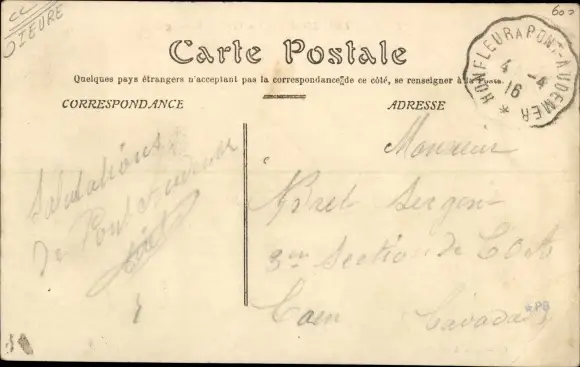 CC
DIEURE
600
Carte Postale
Quelques pays étrangers n'acceptant pas la correspondance de ce côté, se renseigner à la Poste.
CORRESPONDANCE
ADRESSE
HONFLEUR A PONT-AUDEMER *
4 -4
16
Salutations
de Pont Audemer
Monsieur
Sergent
3me Section de C O A
Caen Calvados
*PB